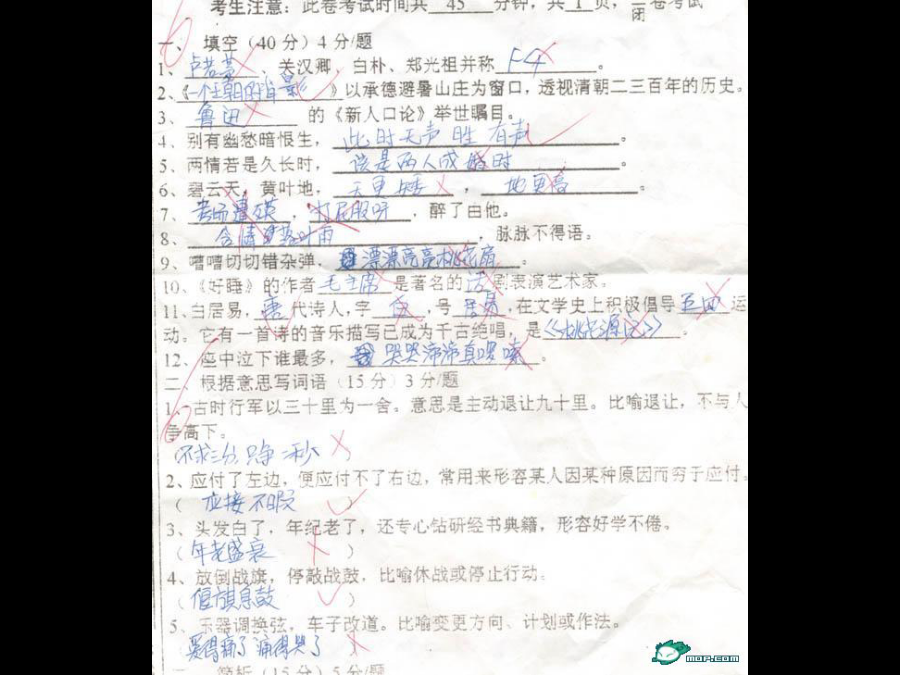 考生注意：此卷考试时间共 45 分钟，共 1 页，闭卷考试
一、填空（40分）4分/题
1、卢若莫，关汉卿，白朴、郑光祖并称 F4。
2、《一个王朝的背影》以承德避暑山庄为窗口，透视清朝二三百年的历史。
3、鲁迅 的《新人口论》举世瞩目。
4、别有幽愁暗恨生，此时无声胜有声。
5、两情若是久长时，该是两人成婚时。
6、碧云天，黄叶地，天更矮，地更高。
7、考场遭殃，打屁股呀，醉了由他。
8、含情，脉脉不得语。
9、嘈嘈切切错杂弹，漂漂亮亮桃花扇。
10、《好睡》的作者 毛主席 是著名的 话 剧表演艺术家。
11、白居易，唐 代诗人，字 白，号 居易，在文学史上积极倡导 五四 运
动。它有一首诗的音乐描写已成为千古绝唱，是《桃花源记》。
12、座中泣下谁最多，哭哭啼啼真啰嗦。
二、根据意思写词语（15分）3分/题
1、古时行军以三十里为一舍。意思是主动退让九十里。比喻退让，不与人
争高下。
（不求三分，只争二秒）
2、应付了左边，便应付不了右边，常用来形容某人因某种原因而穷于应付。
（应接不暇）
3、头发白了，年纪老了，还专心钻研经书典籍，形容好学不倦。
（年老盛衰）
4、放倒战旗，停敲战鼓，比喻休战或停止行动。
（偃旗息鼓）
5、乐器调换弦，车子改道。比喻变更方向、计划或作法。
爱得痛了 痛得哭了
简析（15分）5分/题
MOP.COM